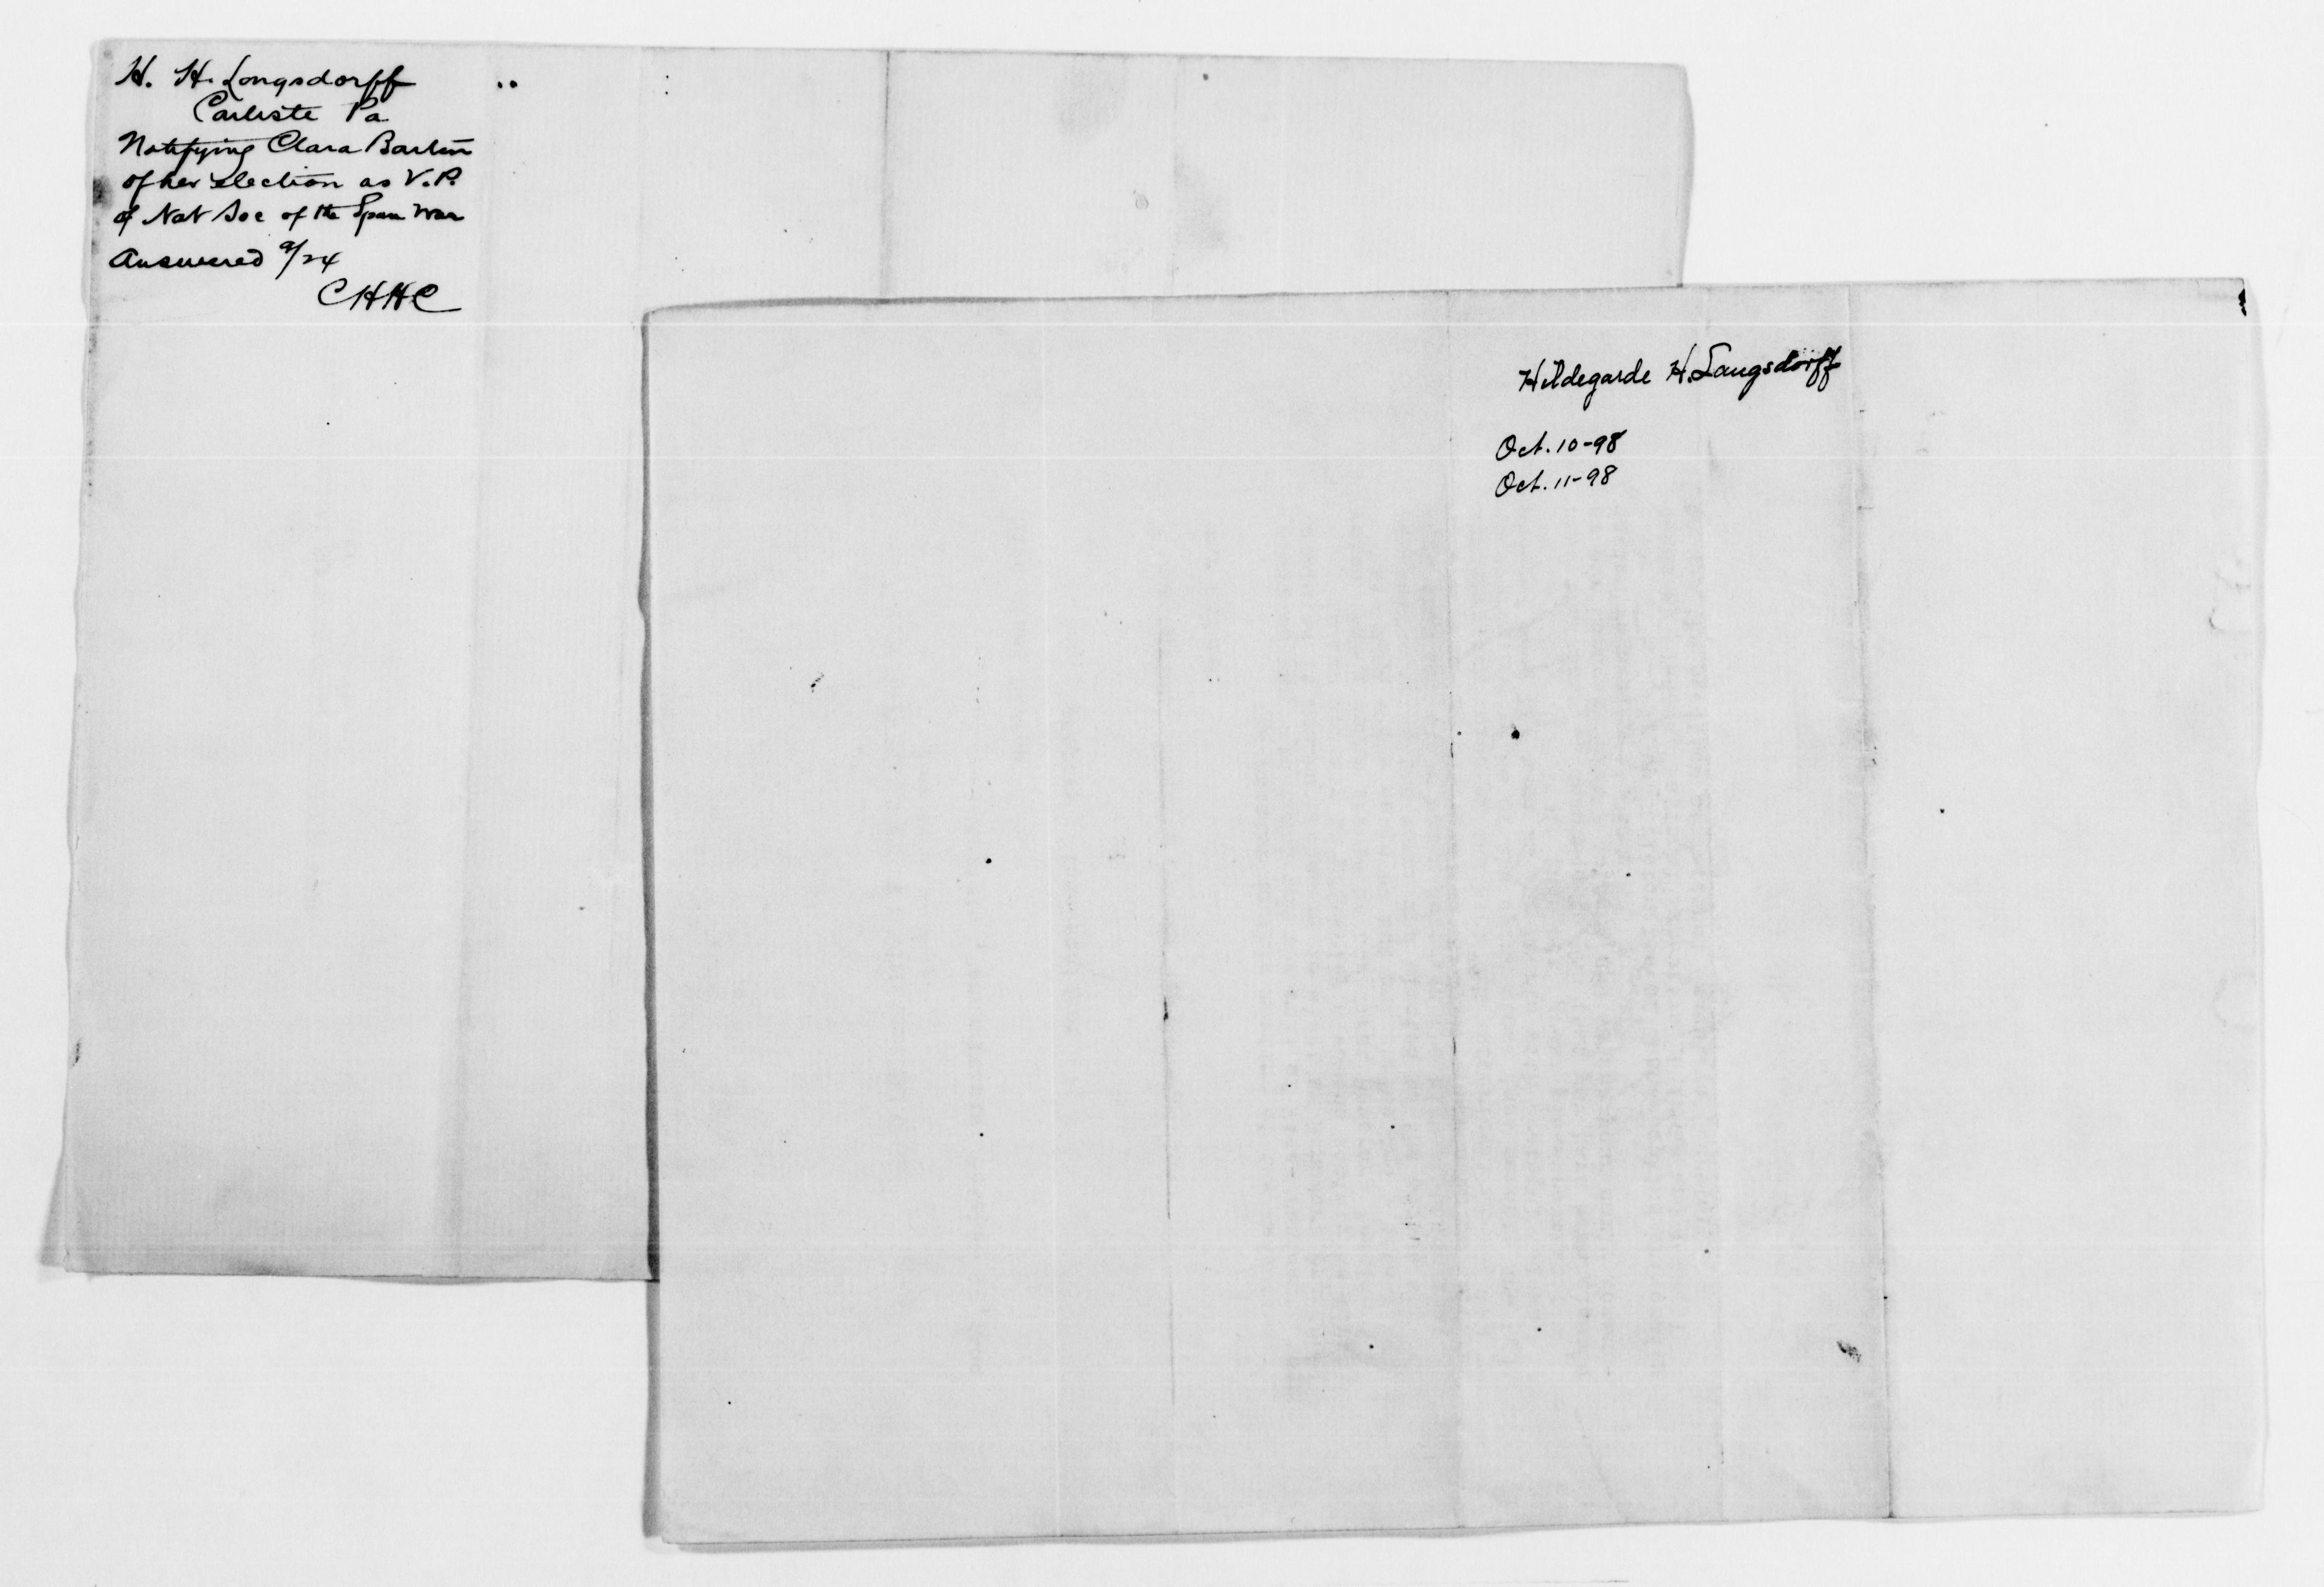 H. H. Longsdorff
Carliste Pa
Notifying Clara Barton
of her election as V.P.
of Nat Soc of the Span War
Answered 9/24
CHHC
Hildegarde H. Langsdorff
Oct. 10-98
Oct. 11-98